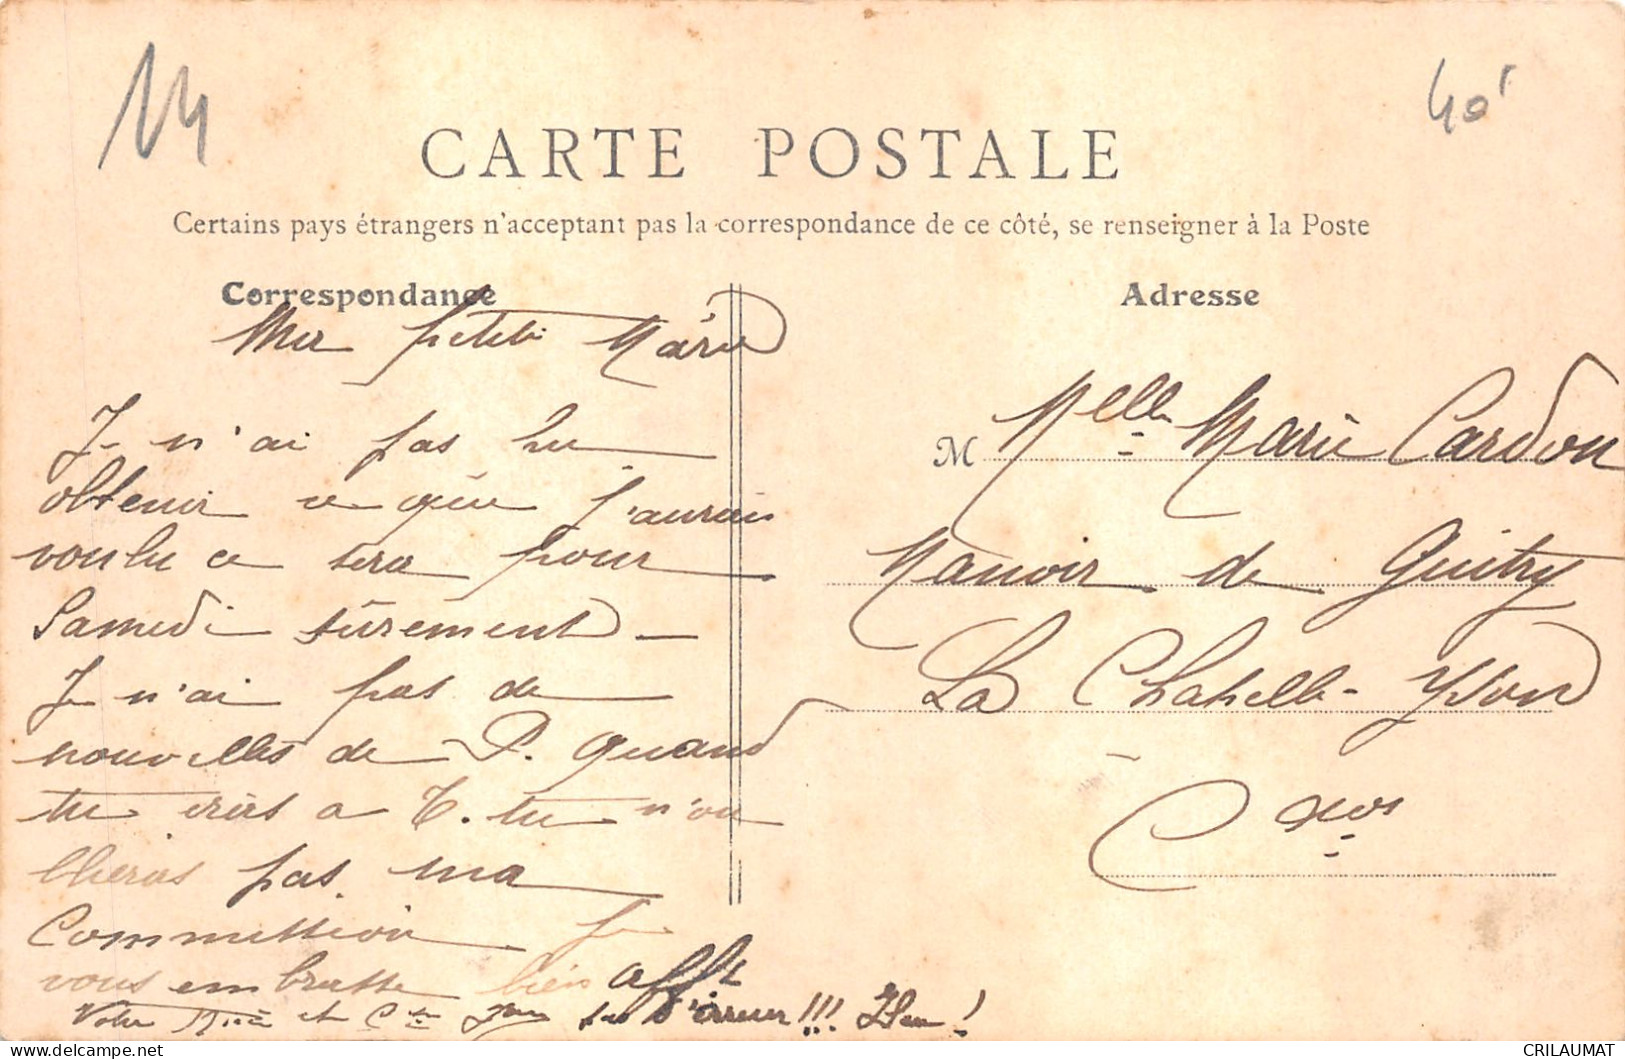 14
40
CARTE POSTALE
Certains pays étrangers n'acceptant pas la correspondance de ce côté, se renseigner à la Poste
Correspondance
Ma petite Marie
Je n'ai pas pu
obtenir ce que j'aurais
voulu ce sera pour
Samedi sûrement —
Je n'ai pas de
nouvelles de P. quand
tu iras a T. tu n'ou
blieras pas ma
Commission je
vous embrasse bien afft
Votre et d'erreur!!!
Adresse
M Melle Marie Cardon
Manoir de Guitry
La Chapelle-Yvon
Cvos
CRILAUMAT